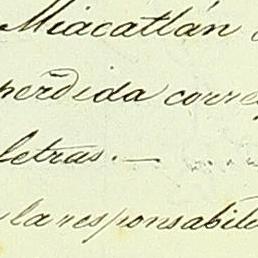 Miacatlán
perdida corre
letras.—
la responsabili